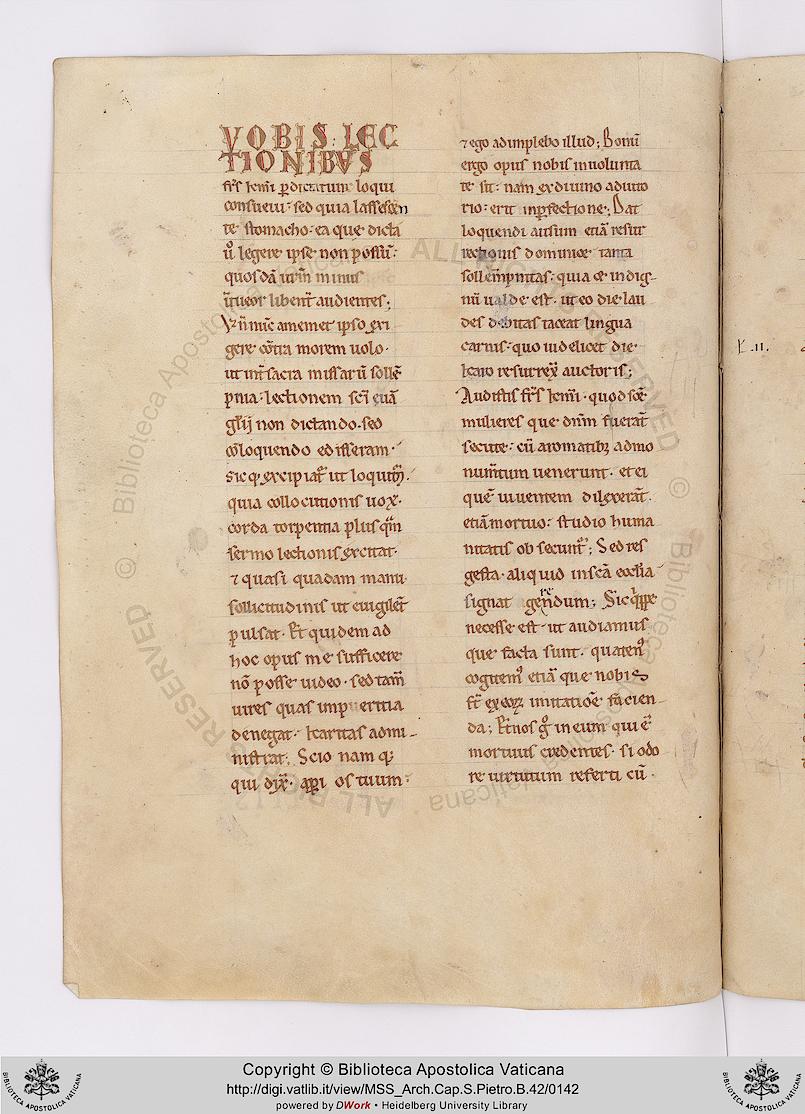 VOBIS LEC
TIONIBVS
fr̄s kmī p dictatum loqui
consueui· sed quia lassescen
te stomacho· ea que dicta
ūo legere ipse non possū·
quosdā ūrm minus
ītueor libent̄ audientes;
gere cōtra morem uolo·
ut int̄ sacra missarū sollē
pnia· lectionem scī euā
głij non dictando· sed
cōloquendo edisseram·
Sicq; excipiat̄ ut loquim̄·
quia collocutionis uox·
corda torpentia plus quā
sermo lectionis excitat·
⁊ quasi quadam manu
sollicitudinis ut euigilet̄
pulsat· Et quidem ad
hoc opus me sufficere
nō posse uideo· sed tam̄
uires quas imperitia
denegat· karitas admi-
nistrat; Scio namq;
qui dix̄· aperi os tuum·
⁊ ego adimplebo illud; Bonū
ergo opus nobis in uolunta
te sit· nam ex diuino adiuto
rio· erit in perfectione; Dat
loquendi ausum etiā resur
rectionis dominice tanta
sollempnitas· quia ⁊ indig-
nū ualde est· ut eo die lau
des debitas taceat lingua
carnis· quo uidelicet die
caro resurrex̄ auctoris;
Audistis fr̄s kmī· quod scē
mulieres que dn̄m fuerāt
secute· cū aromatibȝ ad mo
num̄tum uenerunt· et ei
quē uiuentem dilexerāt·
etiā mortuo· studio huma
nitatis obsecunt̄; Sed res
gesta· aliquid in scā eccłia
signat gerendum; Sic q̄ppe
necesse est· ut audiamus
que facta sunt· quaten⁹
cogitem⁹ etiā que nobis
st̄ ex eoȝ imitatiōe facien-
da; Et nos gͦ in eum qui ē
mortuus credentes· si odo
re uirtutum referti cū·
K .II.
ALL RIGHTS RESERVED
© Biblioteca Apostolica Vaticana
Copyright © Biblioteca Apostolica Vaticana
http://digi.vatlib.it/view/MSS_Arch.Cap.S.Pietro.B.42/0142
powered by DWork • Heidelberg University Library
BIBLIOTECA APOSTOLICA VATICANA
BIBLIOTECA APOSTOLICA VATICANA